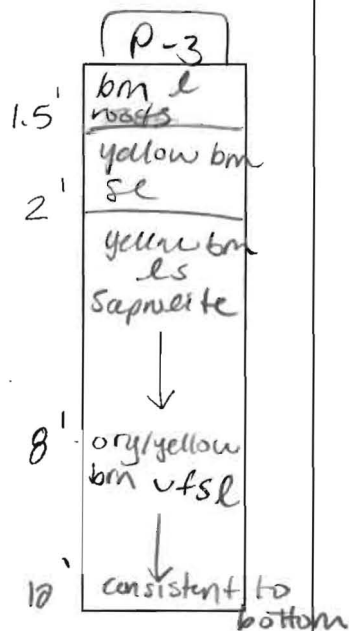 P-3
brn l
roots
1.5'
yellow brn
sl
2'
yellow brn
ls
Saprolite
8'
org/yellow
brn vfsl
consistent to
bottom